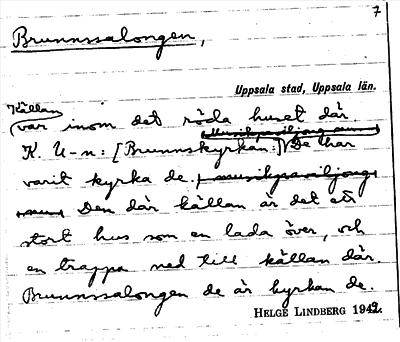 7
Brunnssalongen,
Uppsala stad, Uppsala län.
Källan
var inom det röda huset där
K. U-n: [Brunnskyrkan:] De har
varit kyrka de. musikpaviljong
Den där källan är det ett
stort hus som en lada över, och
en trappa ned till källan där.
Brunnssalongen de är kyrkan de.
HELGE LINDBERG 1942.